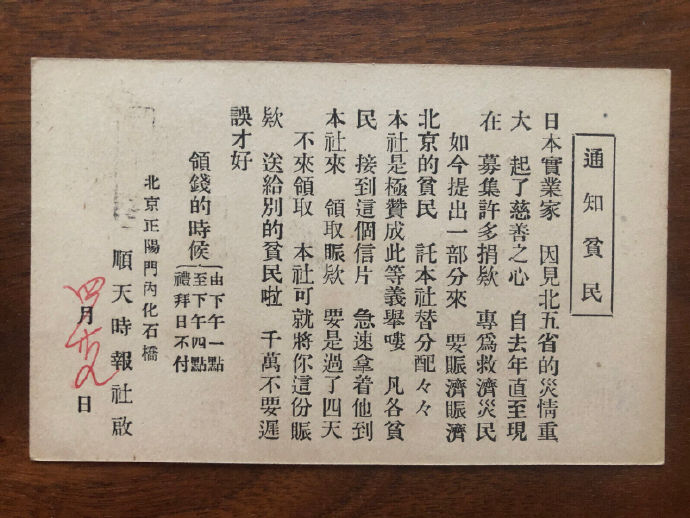 通知貧民
日本實業家　因見北五省的災情重
大　起了慈善之心　自去年直至現
在　募集許多捐欵　專爲救濟災民
如今提出一部分來　要賑濟賑濟
北京的貧民　託本社替分配々々
本社是極贊成此等義舉嘍　凡各貧
民　接到這個信片　急速拿着他到
本社來　領取賑欵　要是過了四天
不來領取　本社可就將你這份賑
欵　送給別的貧民啦　千萬不要遲
誤才好
領錢的時候
由下午一點
至下午四點
禮拜日不付
北京正陽門內化石橋
順天時報社啟
四月　日